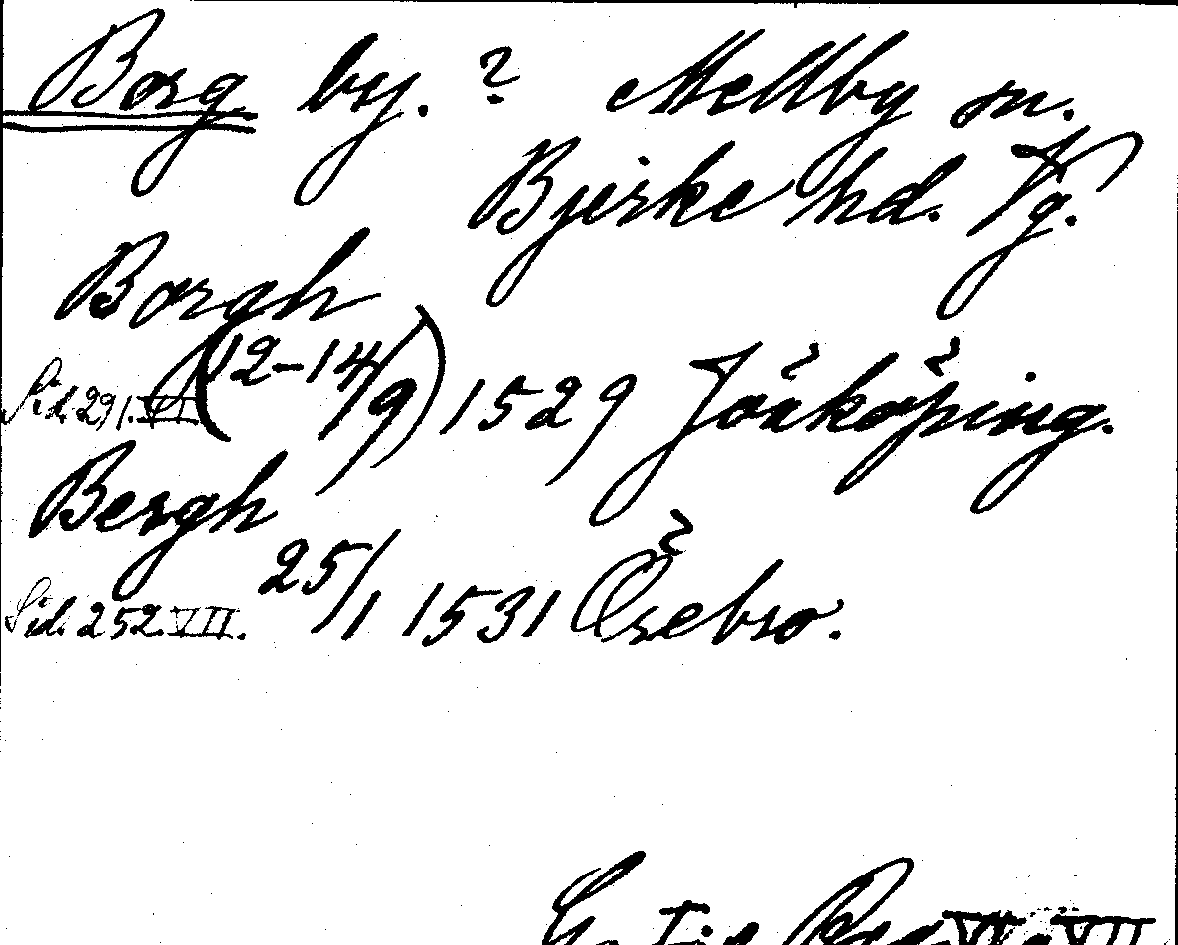 Borg by. ? Mellby sn.
Bjerke hd. Vg.
Borgh
Sid. 291. VI (12-14/9) 1529 Jönköping.
Bergh
Sid. 252. VII. 25/1 1531 Örebro.